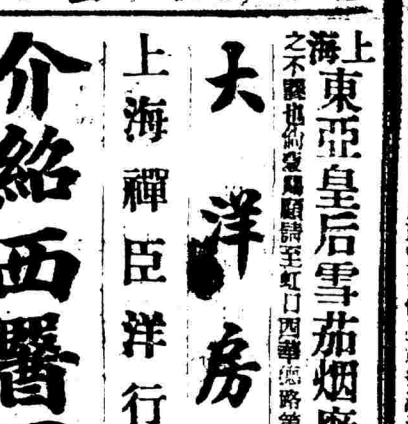 上海
東亞皇后雪茄烟
之不謬也倘蒙賜顧請至虹口西華德路第
大洋房
上海禪臣洋行
介紹西醫